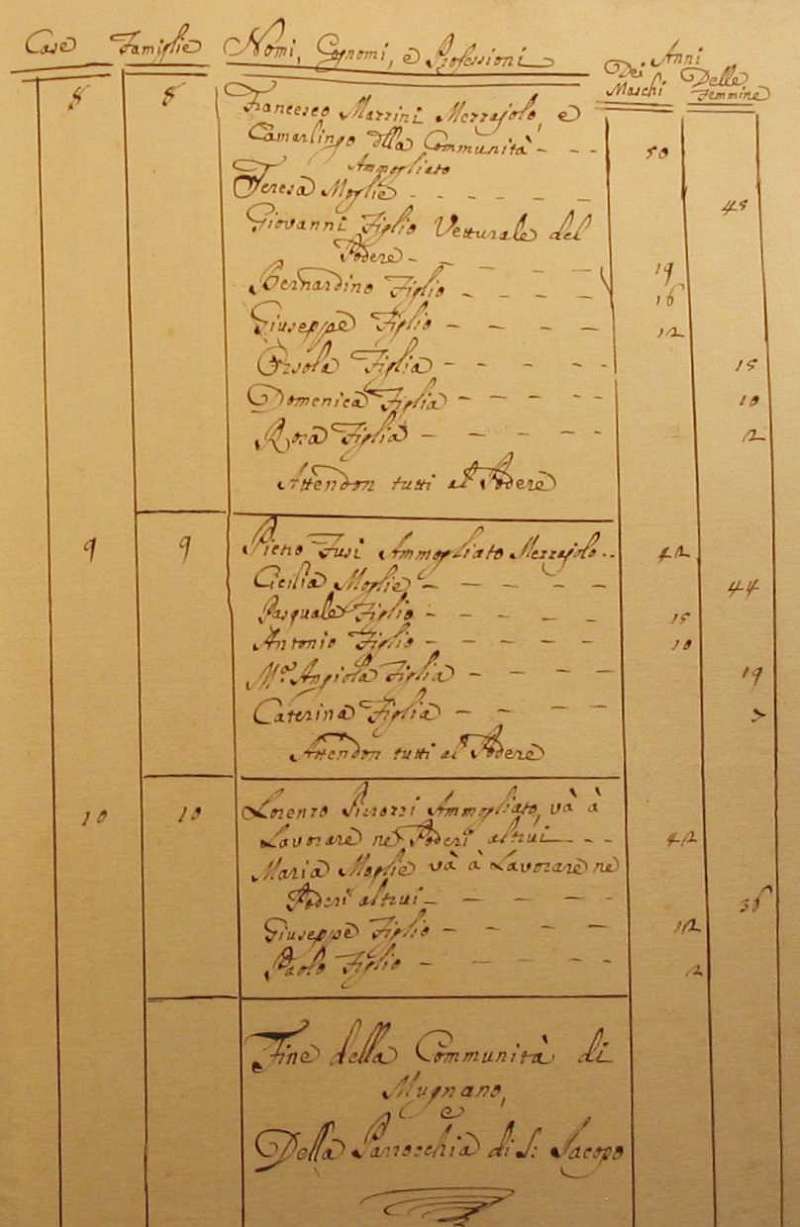 Case Famiglie Nomi, Cognomi, e Professioni Anni
Dei Maschi Delle Femmine
8 8 Francesco Mazzini Mezzajolo, e
Camarlingo della Communità - - - 50
Ammogliato
Teresa Moglie - - - - - 45
Giovanni Figlio Vetturale del
Podere - - - - - 19
Bernardino Figlio - - - - 16
Giuseppe Figlio - - - - 12
Orsola Figlia - - - - - 15
Domenica Figlia - - - - - 10
Rosa Figlia - - - - - 2
Attendon tutti al Podere
9 9 Pietro Fusi Ammogliato Mezzajolo - - 42
Cicilia Moglie - - - - - 44
Pasquale Figlio - - - - - 15
Antonio Figlio - - - - - 10
M.a Angiola Figlia - - - - 19
Caterina Figlia - - - - 7
Attendon tutti al Podere
10 10 Lorenzo Ammogliato, và à
Lavorare ne Poderi altrui - - - 42
Maria Moglie và à Lavorare ne
Poderi altrui - - - - - 36
Giuseppe Figlio - - - - 12
Paolo Figlio - - - - - 2
Fine della Communità di
Mugnano,
e
Della Parrocchia di S. Jacopo